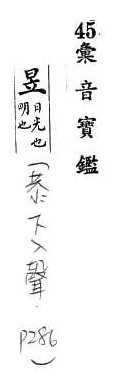 45彙音寶鑑
昱 日光也
明也
(恭下入聲.
P286)